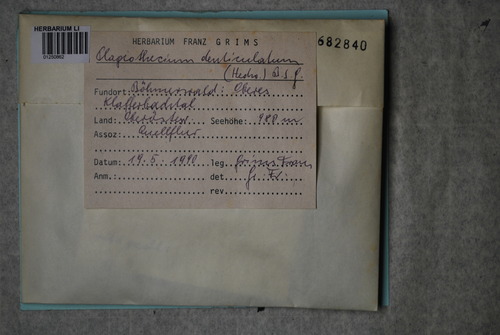 HERBARIUM LI
HERBARIUM FRANZ GRIMS
682840
Plagiothecium denticulatum
(Hedw.) B.S.G.
Fundort: Böhmerwald: Oberes
Land: Seehöhe: m
Assoz: Quellflur
Datum: 19.5.1990 leg. Grims Franz
Anm.: det. Gr. Fr.
rev.